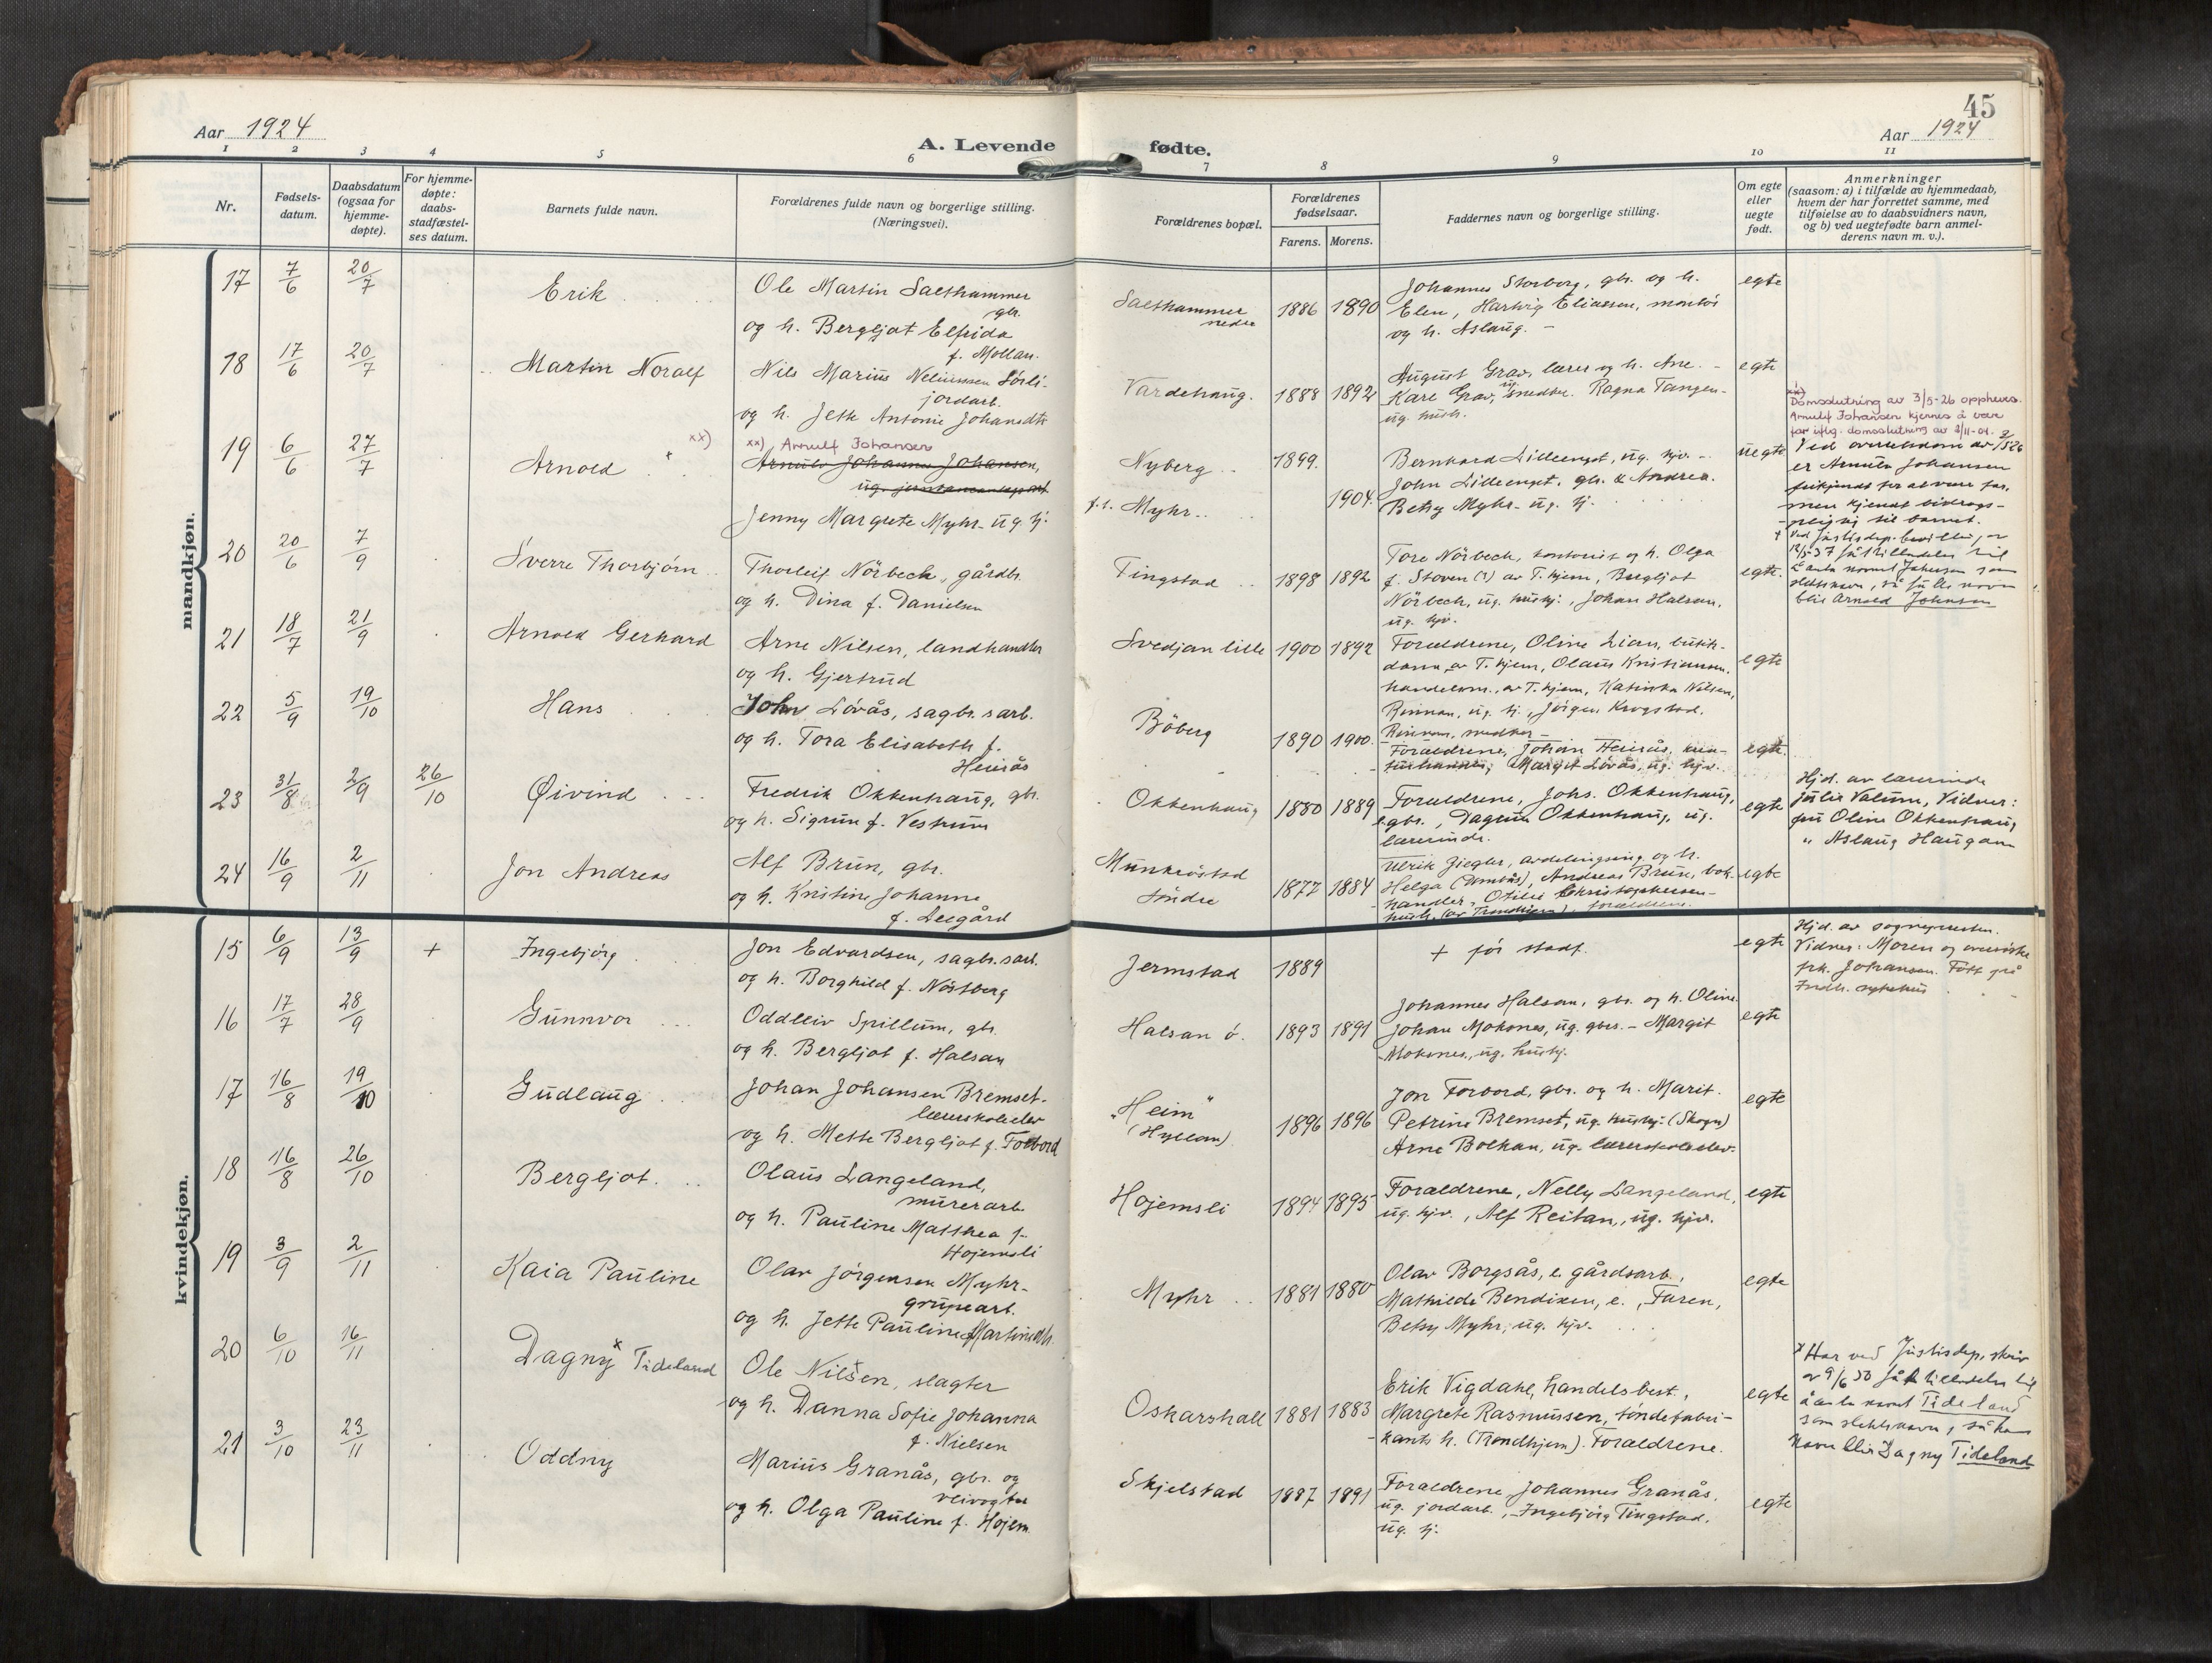 45
Aar 1924
A. Levende
fødte.
Aar 1924
1 2 3 4 5 6 7 8 9 10 11
Nr.
Fødsels-
datum.
Daabsdatum
(ogsaa for
hjemme-
døpte).
For hjemme-
døpte:
daabs-
stadfæstel-
ses datum.
Barnets fulde navn.
Forældrenes fulde navn og borgerlige stilling.
(Næringsvei).
Forældrenes bopæl.
Forældrenes
fødselsaar.
Farens. Morens.
Faddernes navn og borgerlige stilling.
Om egte
eller
uegte
født.
Anmerkninger
(saasom: a) i tilfælde av hjemmedaab,
hvem der har forrettet samme, med
tilføielse av to daabsvidners navn,
og b) ved uegtefødte barn anmel-
derens navn m. v.).
mandkjøn.
17 7/6 20/7 Erik
Ole Martin Salthammer
gbr.
og h. Bergljot Elfrida
f. Mollan.
Salthammer
nedre
1886 1890
Johannes Storborg, gbr. og h.
Elen, Hartvig Eliassen, montør
og h. Aslaug. -
egte
18 17/6 20/7 Martin Noralf
Nils Marius Neliussen Sörli-
jordarb.
og h. Jette Antonie Johansdtr
Vardehaug. 1888 1892
August Grav, lærer og h. Ane. -
Karl Grav, ug. snedker. Ragna Tangen-
ug. hush.
egte
19 6/6 27/7 Arnold xx)
xx) Arnulf Johansen
Arnulv Johannes Johansen,
Jenny Margrete Myhr- ug. tj.
Nyberg 1899.
f. t. Myhr 1904.
Bernhard Lilleenget, ug. hjv. -
John Lilleenget, gbr. & Andrea.
Betsy Myhr- ug. tj.
uegte
xx)
Domsslutning av 3/5-26 oppheves.
Arnulf Johansen kjennes å være
far iflg. domsslutning av
er Arnulv Johansen
frikjendt for at være far,
men kjendt bidrags-
pligtig til barnet.
+ Ved Justisdep. bevilling av
12/5-37 fått tilladelse til
å anta navnet Johnsen som
slektsnavn, så fulle navn
blir Arnold Johnsen
20 20/6 7/9 Sverre Thorbjörn
Thorleif Nörbeck, gårdbr.
og h. Dina f. Danielsen
Tingstad 1898 1892
Tore Nörbeck, kontorist og h. Olga
f. Stoven (?) av T.hjem, Bergljot
Nörbeck, ug. hushj., Johan Halsan,
ug. hjv.
egte.
21 18/7 21/9 Arnold Gerhard
Arne Nilsen, landhandler
og h. Gjertrud
Svedjan lille 1900 1892
Forældrene, Oline Lian, butik-
dame av T.hjem, Olaus Kristiansen,
handelsm., av T.hjem, Katinka Nilsen,
Rinnan, ug. tj., Jörgen Krogstad.
Rinnan, snedker -
egte
22 5/9 19/10 Hans
John Lövås, sagbr.sarb.
og h. Tora Elisabeth f.
Heirås
Böberg 1890 1900.
Forældrene, Johan Heirås,
Margit Lövås, ug. hjv.
egte.
23 31/8 2/9 26/10 Øivind
Fredrik Okkenhaug, gbr.
og h. Sigrun f. Vestrum
Okkenhaug 1880 1889
Forældrene, Johs. Okkenhaug,
e.gbr., Dagrun Okkenhaug, ug.
lærerinde.
egte
Hjd. av lærerinde
Julie Valum, Vidner:
fru Oline Okkenhaug
" Aslaug Haugan
24 16/9 2/11 Jon Andreas
Alf Brun, gbr.
og h. Kristine Johanne
f. Leegård
Munkrøstad
söndre
1877 1884
Ulrik Ziegler, avdelingsing. og h.
Helga, Andreas Brun, bok-
handler, Otilie Christophersen-
hush. (av Trondhjem). forældrene.
egte
kvindekjøn.
15 6/9 13/9 + Ingebjörg
Jon Edvardsen, sagbr.sarb.
og h. Borghild f. Nöstberg
Jermstad 1889
+ för stadf.
egte
Hjd. av sogneprsten.
Vidner: Moren og oversöster
frk. Johansen. Født på
Indh. sykehus
16 17/7 28/9 Gunnvor
Oddleiv Spillum, gbr.
og h. Bergljot f. Halsan
Halsan ö. 1893 1891
Johannes Halsan, gbr. og h. Oline.
Johan Moksnes, ug. gbrs. - Margit
Moksnes, ug. hushj.
egte
17 16/8 19/10 Gudlaug
Johan Johansen Bremset-
lærerskoleelev
og h. Mette Bergljot f. Forbord
"Heim"
(Hyllan)
1896 1896
Jon Forbord, gbr. og h. Marit.
Petrine Bremset, ug. hushj. (Skogn)
Arne Bolkan, ug. lærerskoleelev.
egte
18 16/8 26/10 Bergljot.
Olaus Langeland,
murerarb.
og h. Pauline Matthea f.
Hojemsli
Hojemsli 1894 1895
Forældrene, Nelly Langeland,
ug. hjv., Alf Reitan, ug. hjv.
egte
19 3/9 2/11 Kaia Pauline
Olav Jörgensen Myhr-
grupearb.
og h. Jette Pauline Martinsdtr.
Myhr 1881 1880
Olav Borgsås, e. gårdsarb.,
Mathilde Bendixen, e., Faren,
Betsy Myhr, ug. hjv.
egte
20 6/10 16/11 Dagny x Tideland
Ole Nilsen, slagter
og h. Danna Sofie Johanna
f. Nielsen
Oskarshall 1881 1883
Erik Vigdahl, handelsbest.,
Margrete Rasmussen, töndefabri-
kants h. (Trondhjem). Forældrene.
egte
x Har ved Justisdep. skriv
av 9/6 30 fått tilladelse til
å anta navnet Tideland
som slektsnavn, så hans
navn blir Dagny Tideland
21 3/10 23/11 Oddny
Marius Granås, gbr. og
veivogter
og h. Olga Pauline f. Hojem.
Skjelstad 1887 1891
Forældrene, Johannes Granås.
ug. jordarb., Ingebjörg Tingstad.
ug. tj.
egte